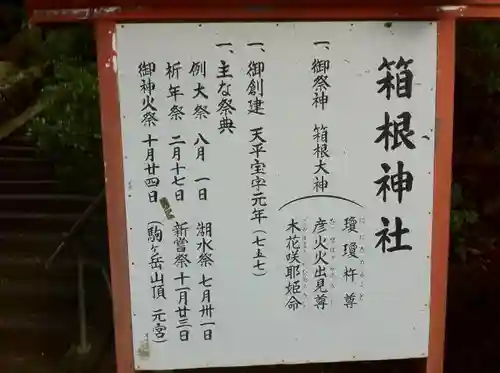 箱根神社
一、御祭神 箱根大神
瓊瓊杵尊
彦火火出見尊
木花咲耶姫命
一、御創建 天平宝字元年（七五七）
一、主な祭典
例大祭 八月一日 湖水祭 七月卅一日
祈年祭 二月十七日 新嘗祭 十一月廿三日
御神火祭 十月廿四日（駒ヶ岳山頂 元宮）